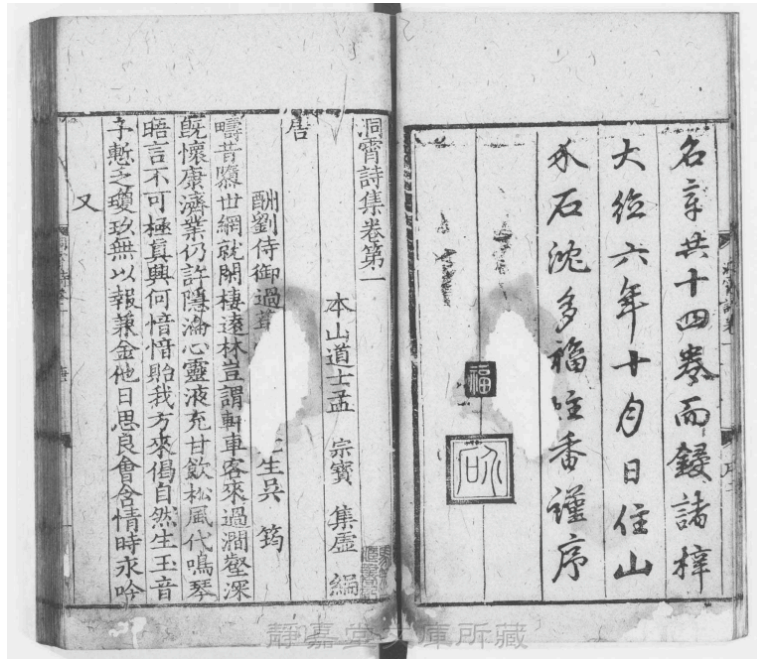 名章共十四卷而鋟諸梓
大德六年十月日住山
介石沈多福炷香謹序
福
洞霄詩集卷第一
本山道士孟 宗寶 集虛 編
唐
酬劉侍御過
生吳 筠
疇昔隳世網就閑棲遠林豈謂軒車客來過澗壑深
旣懷康濟業仍許隱淪心靈液充甘飲松風代鳴琴
晤言不可極真興何愔愔貽我方來偈自然生玉音
予慙乏瓊玖無以報兼金他日思良會含情時永吟
又
靜嘉堂文庫所藏